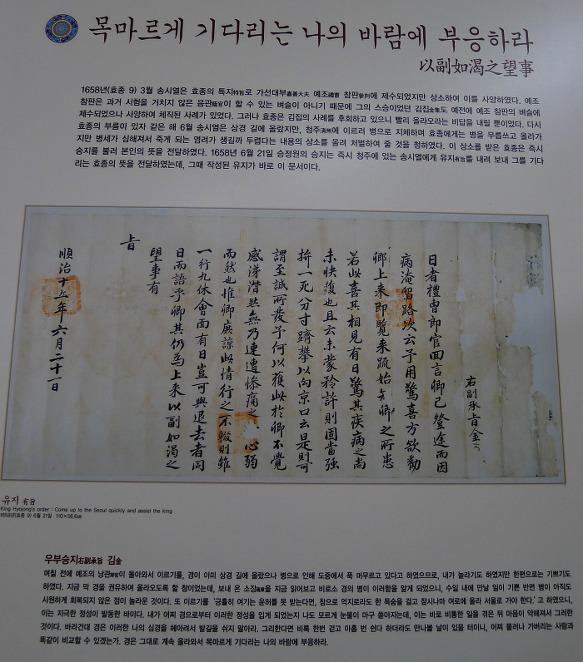 목마르게 기다리는 나의 바람에 부응하라
以副如渴之望事
1658년(효종 9) 3월 송시열은 효종의 특지特旨로 가선대부嘉善大夫 예조禮曹 참판參判에 제수되었지만 상소하여 이를 사양하였다. 예조
참판은 과거 시험을 거치지 않은 음관蔭官이 할 수 있는 벼슬이 아니기 때문에 그의 스승이었던 김집金集도 예전에 예조 참판의 벼슬에
제수되었으나 사양하여 체직된 사례가 있었다. 그러나 효종은 김집의 사례를 후회하고 있으니 빨리 올라오라는 비답을 내릴 뿐이었다. 다시
효종의 부름이 있자 같은 해 6월 송시열은 상경 길에 올랐지만, 청주淸州에 이르러 병으로 지체하며 효종에게는 병을 무릅쓰고 올라가
지만 병세가 심해져서 죽게 되는 염려가 생길까 두렵다는 내용의 상소를 올려 처벌하여 줄 것을 청하였다. 이 상소를 받은 효종은 즉시
승지를 불러 본인의 뜻을 전달하였다. 1658년 6월 21일 승정원의 승지는 즉시 청주에 있는 송시열에게 유지有旨를 내려 보내 그를 기다
리는 효종의 뜻을 전달하였는데, 그때 작성된 유지가 바로 이 문서이다.
右副承旨金
日者禮曹郎官回言卿已登途而因
病淹留路次云予用驚喜方欲勸
卿上來即覽來疏始知卿之所患
若此喜其相見有日驚其疾病之尚
未快復也且云未蒙矜許則固當強
拚一死分寸躋攀以向京口云是則可
謂至誠所發予何以獲此於卿不覺
感涕潸然無乃連遭慘痛之 心弱
而然也惟卿庶諒此情行之不輟則雖
一行九休會面有日豈可與退去者同
日而語乎卿其仍爲上來以副如渴之
望事有
旨
順治十五年六月二十一日
유지 有旨
King Hyojong's order : Come up to the Seoul quickly and assist the king
1658년(효종 9) 6월 21일
우부승지右副承旨 김金
며칠 전에 예조의 낭관郎官이 돌아와서 이르기를, 경이 이미 상경 길에 올랐으나 병으로 인해 도중에서 푹 머무르고 있다고 하였으므로, 내가 놀라기도 하였지만 한편으로는 기쁘기도
하였다. 지금 막 경을 권유하여 올라오도록 할 참이었는데, 보내 온 소장을 지금 읽어보고 비로소 경의 병이 이러함을 알게 되었으니, 수일 내에 만날 일이 기쁜 반면 병이 아직도
시원하게 회복되지 않은 점이 놀라운 것이다. 또 이르기를 '긍휼히 여기는 윤허를 못 받는다면, 참으로 억지로라도 한 목숨을 걸고 잠시나마 여로에 올라 서울로 가야 한다.' 고 하였으니,
이는 지극한 정성이 발동한 바이다. 내가 어찌 경으로부터 이러한 정성을 입게 되었는지 나도 모르게 눈물이 마구 쏟아지는데, 이는 바로 비통한 일을 겪은 뒤 마음이 약해져서 그러한
것이다. 바라건대 경은 이러한 나의 심경을 헤아려서 발길을 쉬지 말아라. 그리한다면 비록 한번 걷고 아홉 번 쉰다 하더라도 만나볼 날이 있을 터이니, 어찌 물러나 가버리는 사람과
똑같이 비교할 수 있겠는가. 경은 그대로 계속 올라와서 목마르게 기다리는 나의 바람에 부응하라.